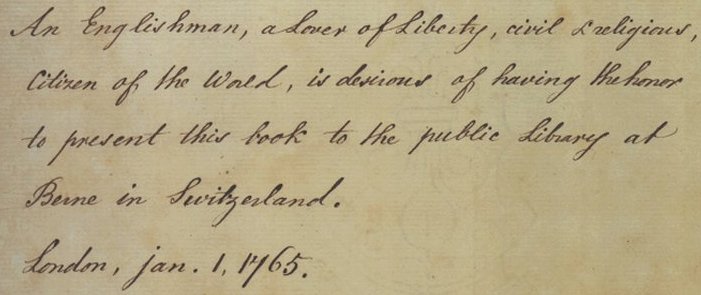 An Englishman, a Lover of Liberty, civil & religious,
Citizen of the World, is desirous of having the honor
to present this book to the public Library at
Berne in Switzerland.
London, jan. 1, 1765.